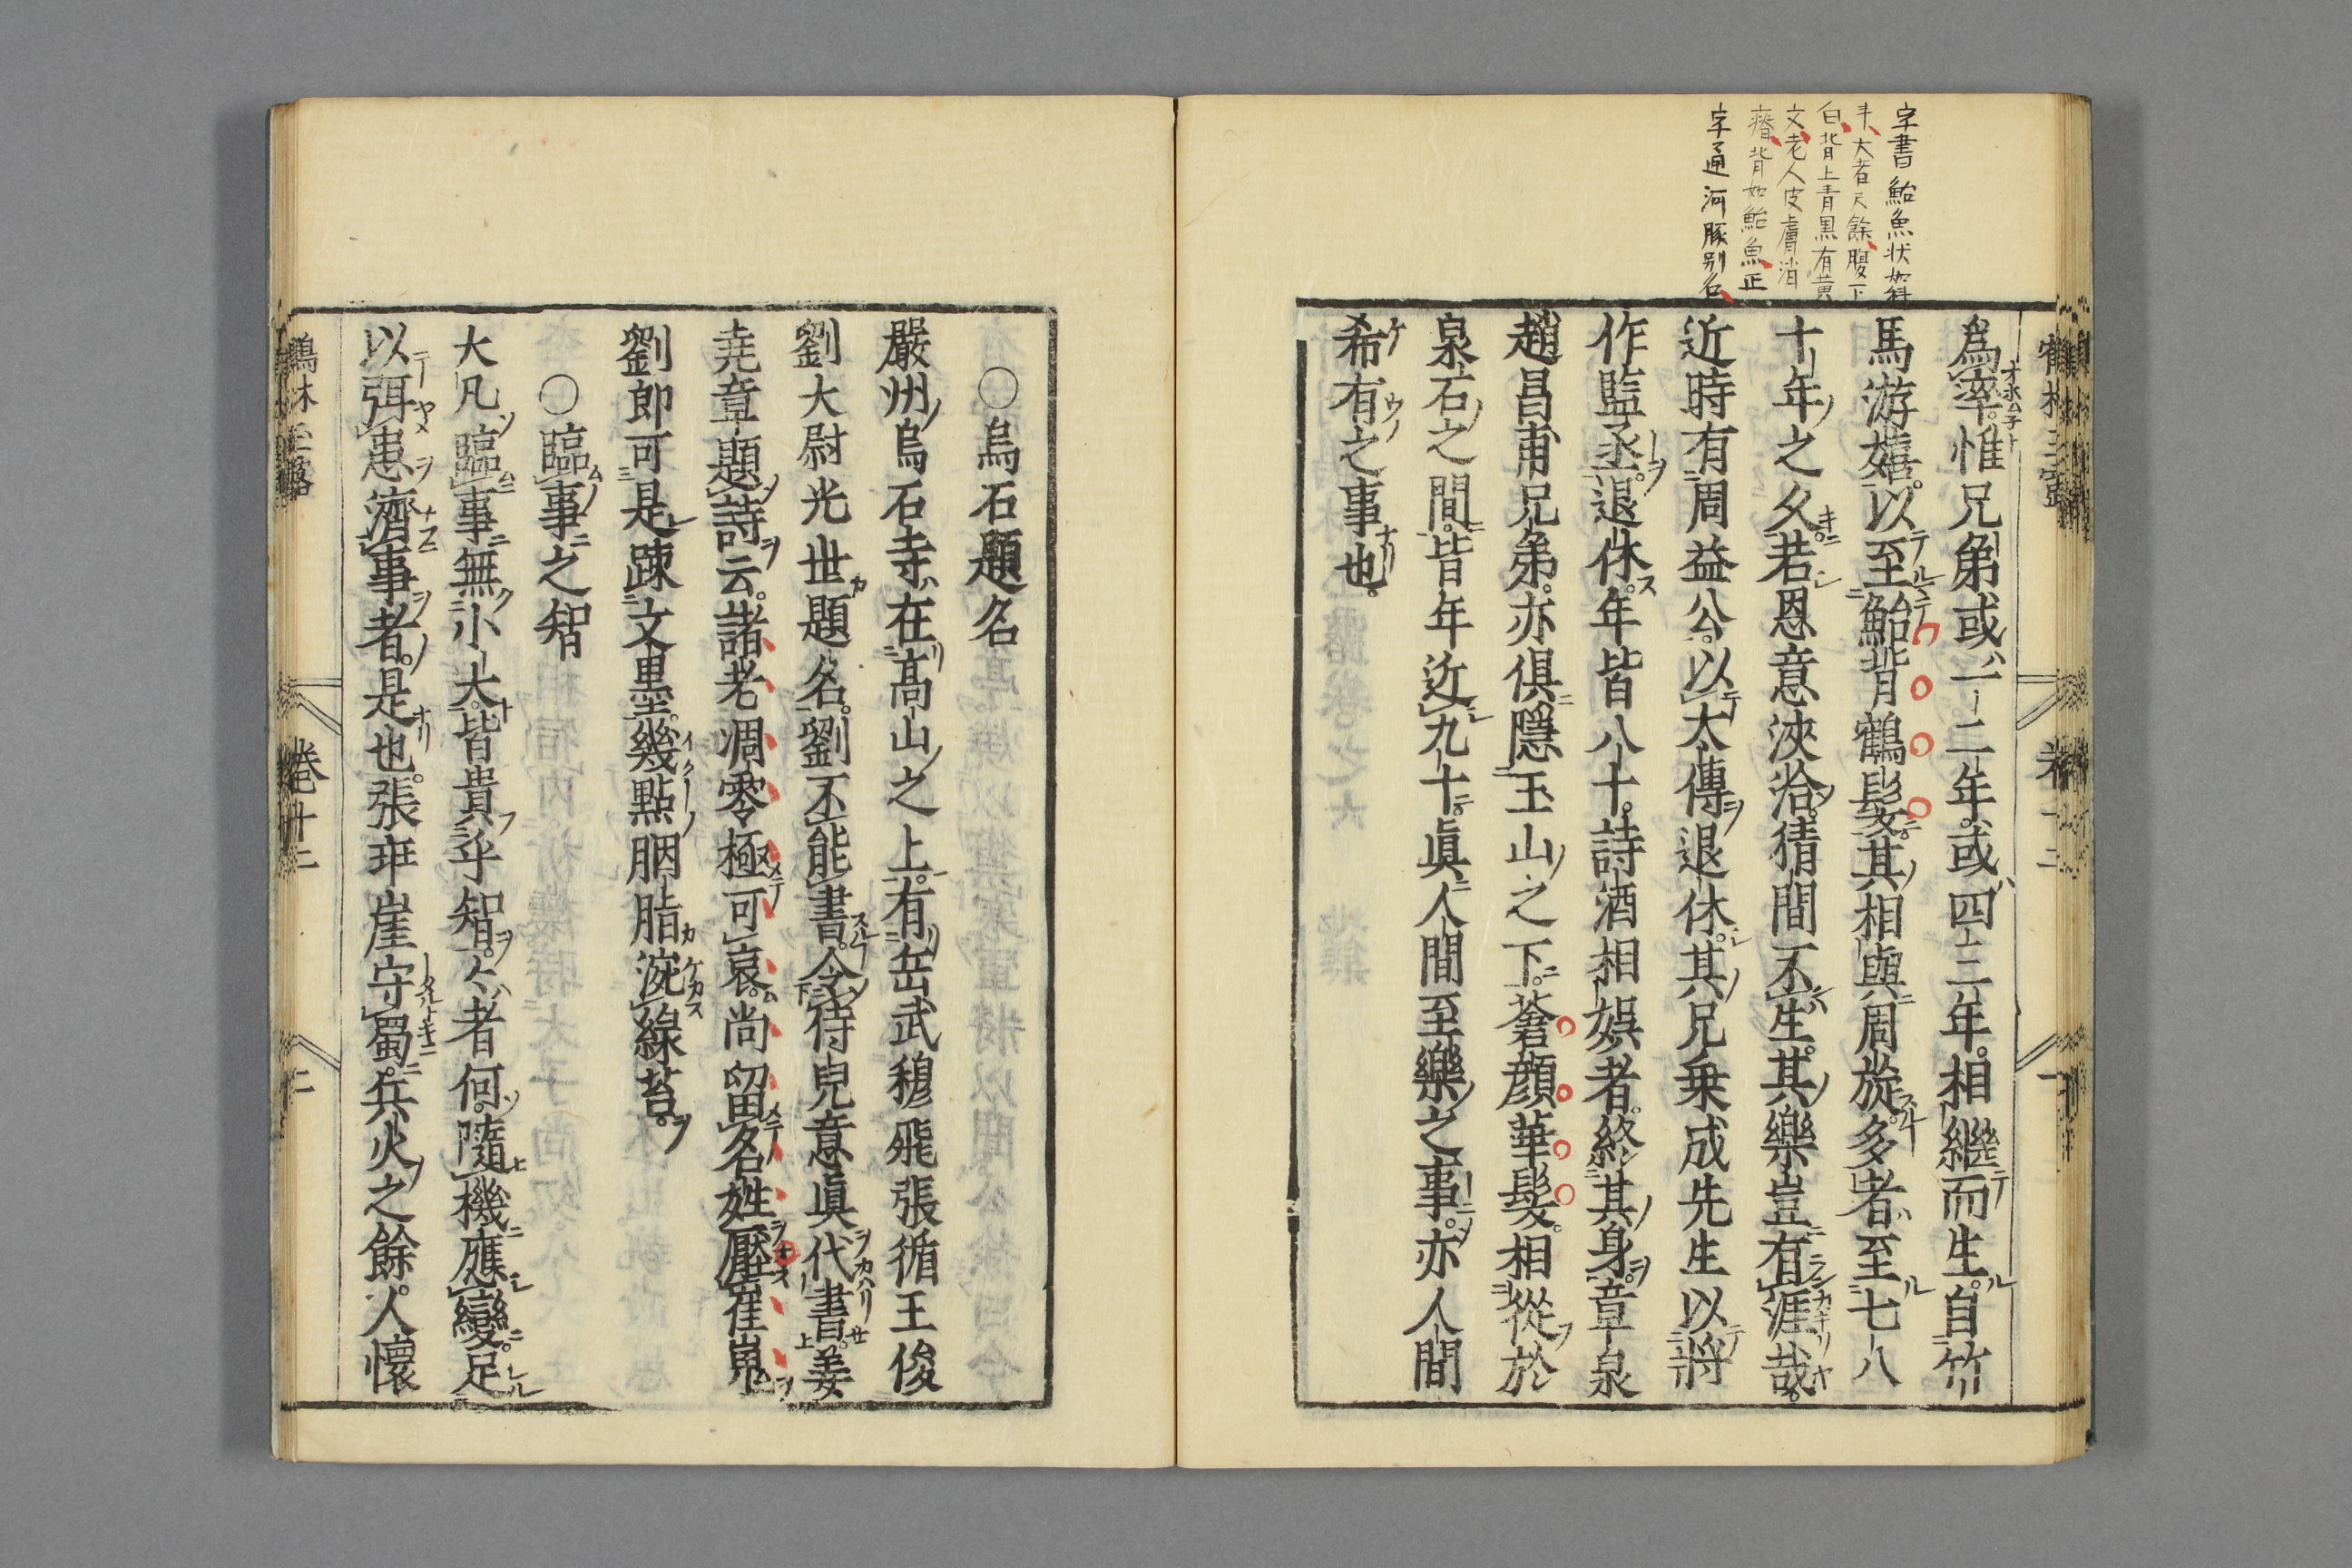 字書鮐魚状如科
斗大者尺餘腹下
白背上青黒有黄
文老人皮膚消
瘠背如鮐魚正
字通河豚別名
爲率惟兄弟或一二年或四三年相繼而生自竹
馬游嬉以至鮐背鶴髮其相與周旋多者至七八
十年之久若恩意浹洽猜間不生其樂豈有涯哉
近時有周益公以太傳退休其兄乗成先生以將
作監丞退休年皆八十詩酒相娯者終其身章泉
趙昌甫兄弟亦俱隱玉山之下蒼顔華髮相從於
泉石之間皆年近九十眞人間至樂之事亦人間
希有之事也
〇烏石題名
嚴州烏石寺在高山之上有岳武穆飛張循王俊
劉大尉光世題名劉不能書令侍兒意眞代書姜
尭章題詩云諸老凋零極可哀尚留名姓壓崔嵬
劉郎可是踈文墨幾點胭脂涴綠苔
〇臨事之智
大凡臨事無小大皆貴乎智々者何隨機應變足
以弭患濟事者是也張班崖守蜀兵火之餘人懷
卷十二
二